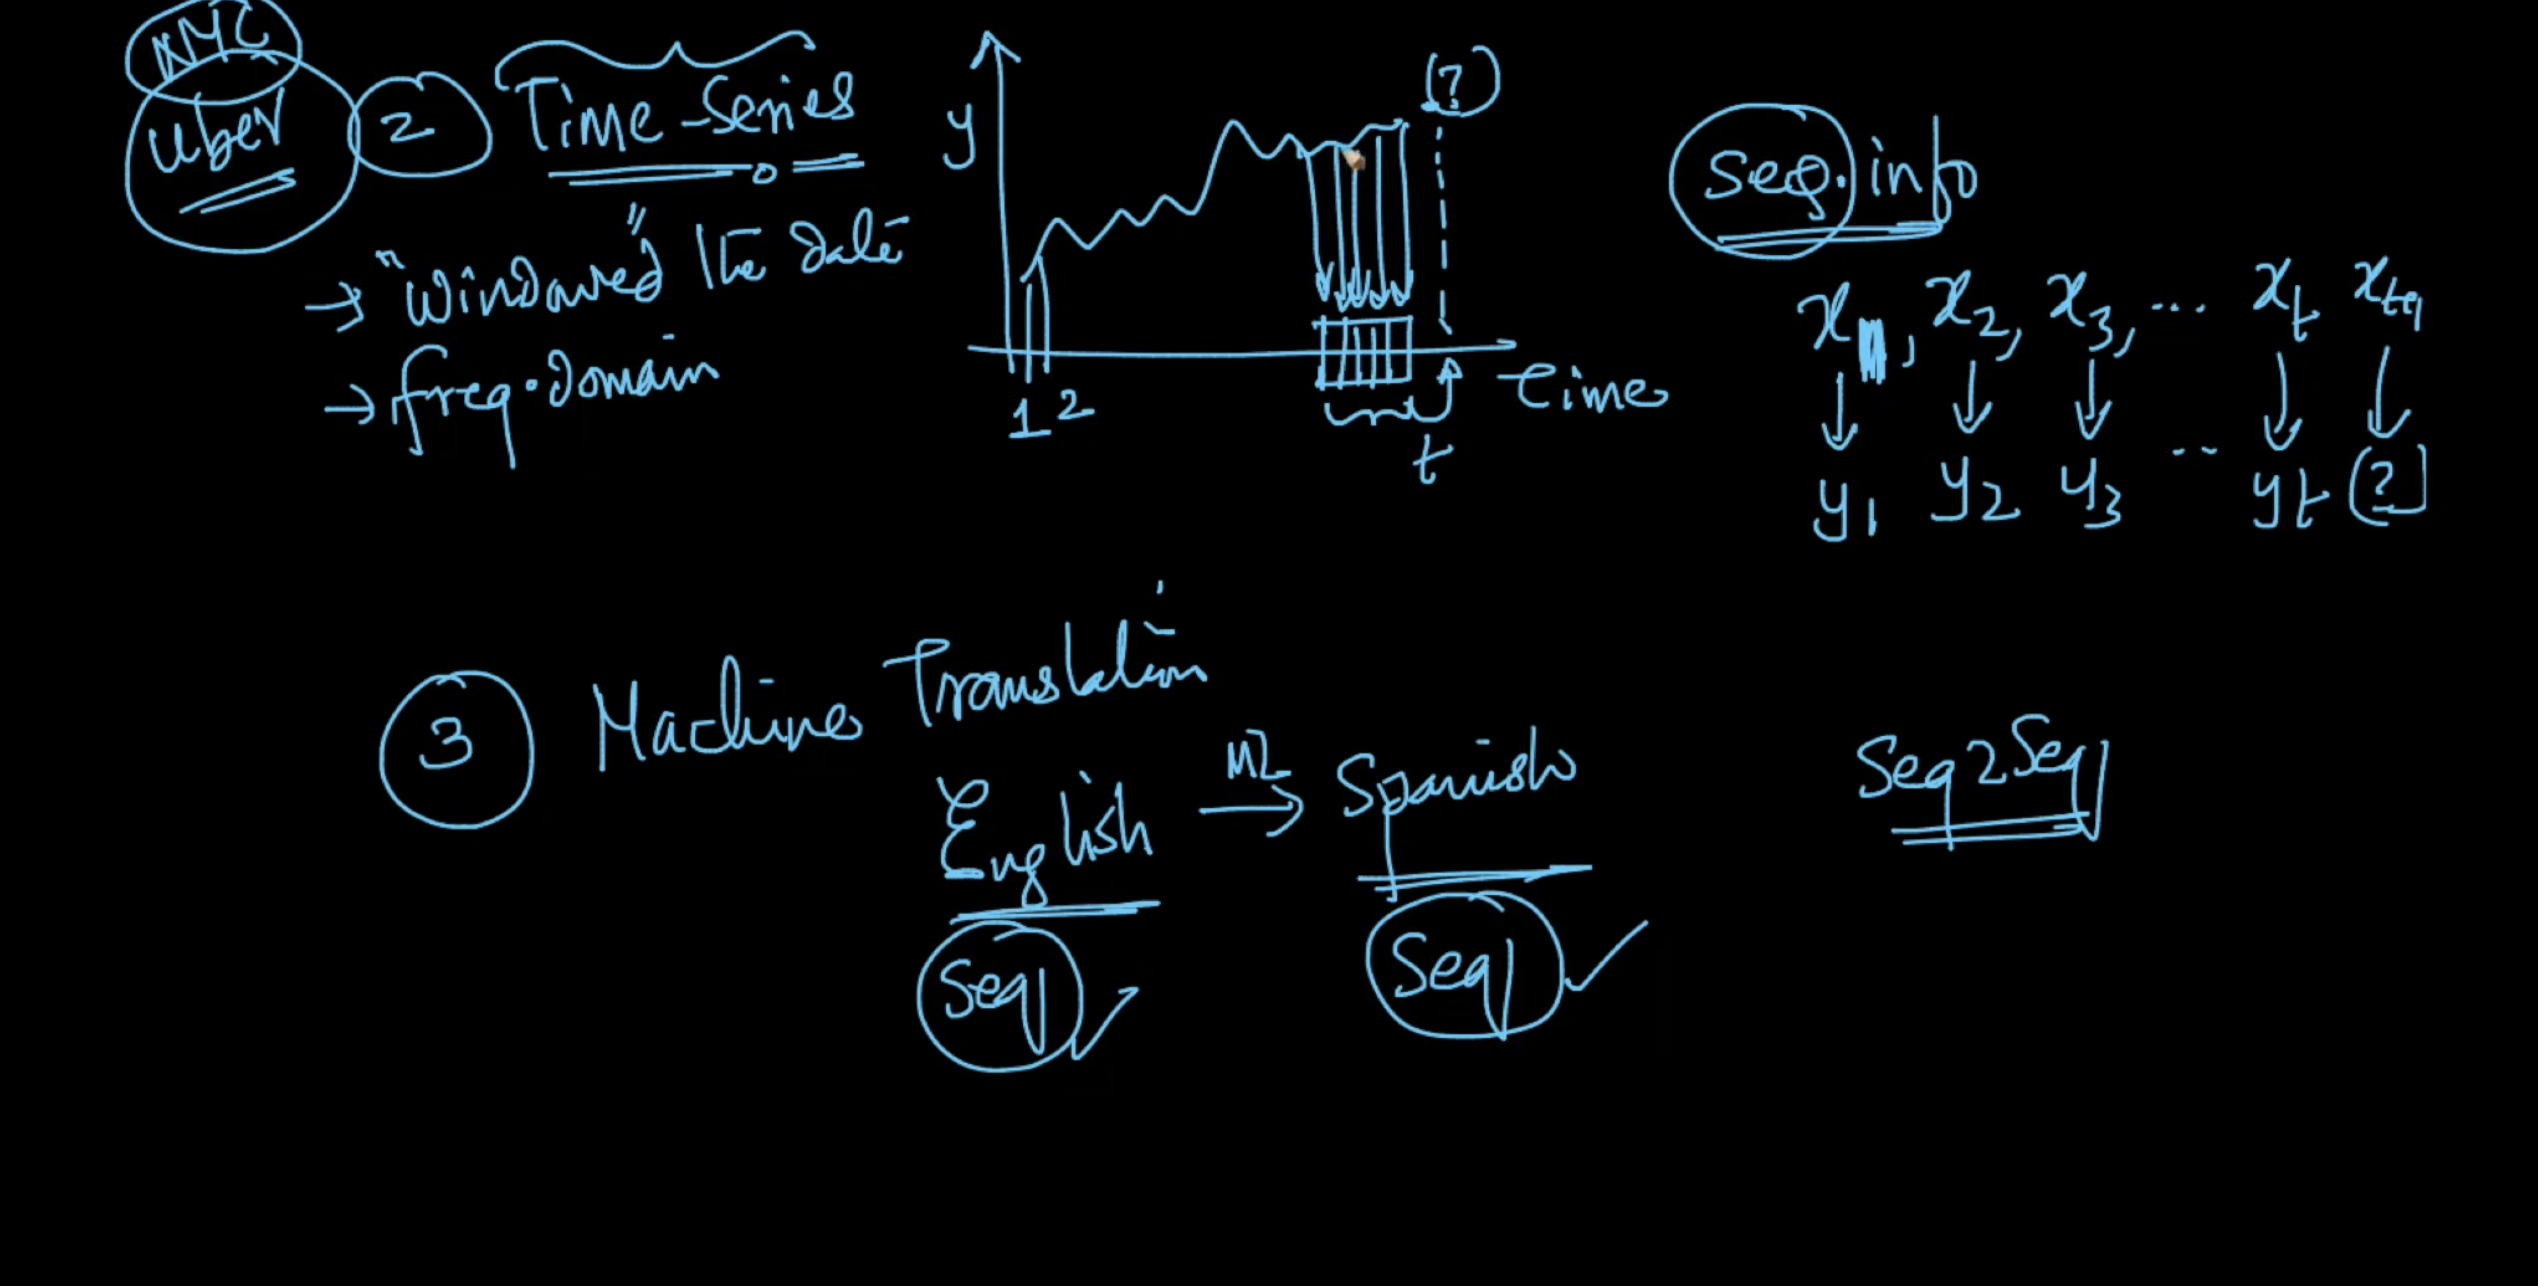 NYC
Uber
2 Time-Series
→ "Windowed" the data
→ freq. domain
y
(?)
1 2
t
time
Seq. info
x₁, x₂, x₃, ... xₜ xₜ₊₁
y₁ y₂ y₃ .. yₜ (?)
3 Machine Translation
English → ML Spanish
Seq Seq
Seq2Seq